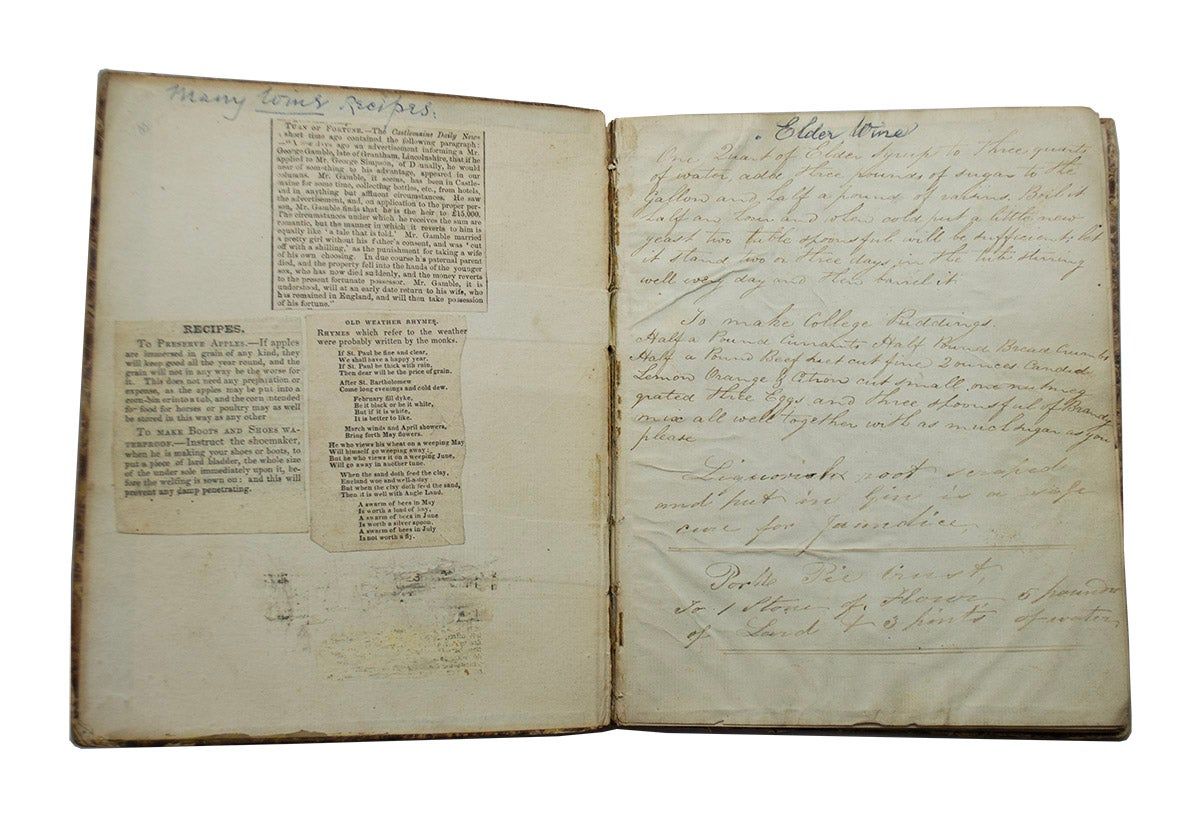 Many Wine Recipes.
TURN OF FORTUNE.—The Castlemaine Daily News
short time ago contained the following paragraph:
days ago an advertisement informing a Mr.
George Gamble, late of Grantham, Lincolnshire, that if he
applied to Mr. George Simpson, of Dunally, he would
hear of something to his advantage, appeared in our
columns. Mr. Gamble, it seems, has been in Castle-
maine for some time, collecting bottles, etc., from hotels,
and in anything but affluent circumstances. He saw
the advertisement, and, on application to the proper per-
son, Mr. Gamble finds that he is the heir to £15,000.
The circumstances under which he receives the sum are
romantic, but the manner in which it reverts to him is
equally like 'a tale that is told.' Mr. Gamble married
a pretty girl without his father's consent, and was 'cut
off with a shilling,' as the punishment for taking a wife
of his own choosing. In due course his paternal parent
died, and the property fell into the hands of the younger
son, who has now died suddenly, and the money reverts
to the present fortunate possessor. Mr. Gamble, it is
understood, will at an early date return to his wife, who
has remained in England, and will then take possession
of his fortune."
RECIPES.
TO PRESERVE APPLES.—If apples
are immersed in grain of any kind, they
will keep good all the year round, and the
grain will not in any way be the worse for
it. This does not need any preparation or
expense, as the apples may be put into a
corn-bin or into a tub, and the corn intended
for food for horses or poultry may as well
be stored in this way as any other
TO MAKE BOOTS AND SHOES WA-
TERPROOF.—Instruct the shoemaker,
when he is making your shoes or boots, to
put a piece of lard bladder, the whole size
of the under sole immediately upon it, be-
fore the welting is sown on: and this will
prevent any damp penetrating.
OLD WEATHER RHYMES.
RHYMES which refer to the weather
were probably written by the monks.
If St. Paul be fine and clear,
We shall have a happy year.
If St. Paul be thick with rain,
Then dear will be the price of grain.
After St. Bartholomew
Come long evenings and cold dew.
February fill dyke,
Be it black or be it white,
But if it is white,
It is better to like.
March winds and April showers,
Bring forth May flowers.
He who views his wheat on a weeping May
Will himself go weeping away;
But he who views it on a weeping June,
Will go away in another tune.
When the sand doth feed the clay,
England woe and well-a-day
But when the clay doth feed the sand,
Then it is well with Angle Land.
A swarm of bees in May
Is worth a load of hay,
A swarm of bees in June
Is worth a silver spoon.
A swarm of bees in July
Is not worth a fly.
Elder Wine
One Quart of Elder Syrup to three quarts
of water adde three pounds of sugar to the
Gallon and half a pound of raisins. Boil it
half an hour and when cold put a little new
yeast two table spoonsful will be sufficient let
it stand two or three days in the tub stirring
well every day and then barrel it
To make College Puddings.
Half a Pound Currants Half Pound Bread Crumbs
Half a Pound Beef suet fine 2 ounces Candid
Lemon Orange & Citron cut small one nutmeg
grated three Eggs and three spoonsful of Brandy
mix all well together with as much sugar as you
please
Liquorish root scraped
and put in Gin is a safe
cure for Jaundice
Porke Pie Crust,
To 1 Stone of Flower 5 pounds
of Lard & 3 pints of water